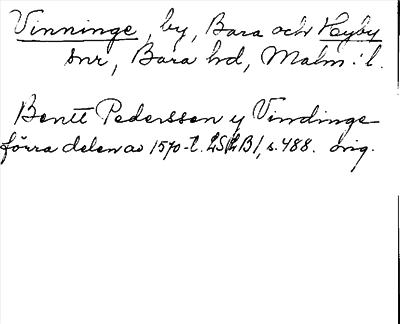 Vinninge, by, Bara och Hyby
snr, Bara hd, Malm:l.
Bentt Pedersson y Vindinge
förra delen av 1570-t. LSkB1, s. 488. orig.